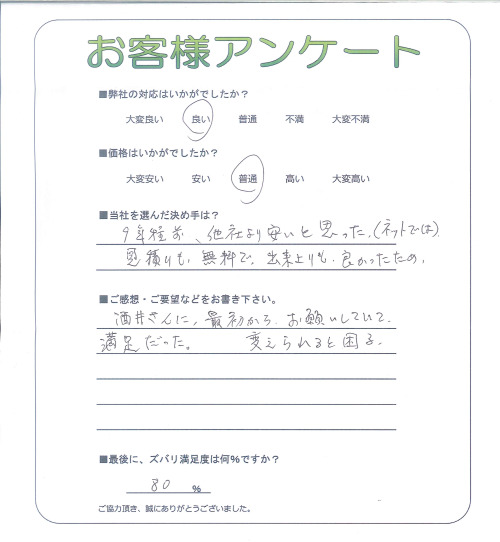 お客様アンケート
■弊社の対応はいかがでしたか？
大変良い 良い 普通 不満 大変不満
■価格はいかがでしたか？
大変安い 安い 普通 高い 大変高い
■当社を選んだ決め手は？
9年程前、他社より安いと思った。(ネットでは)
見積りも、無料で、出来上りも、良かったため。
■ご感想・ご要望などをお書き下さい。
酒井さんに、最初から、お願いしていて、
満足だった。 変えられると困る。
■最後に、ズバリ満足度は何％ですか？
80 ％
ご協力頂き、誠にありがとうございました。